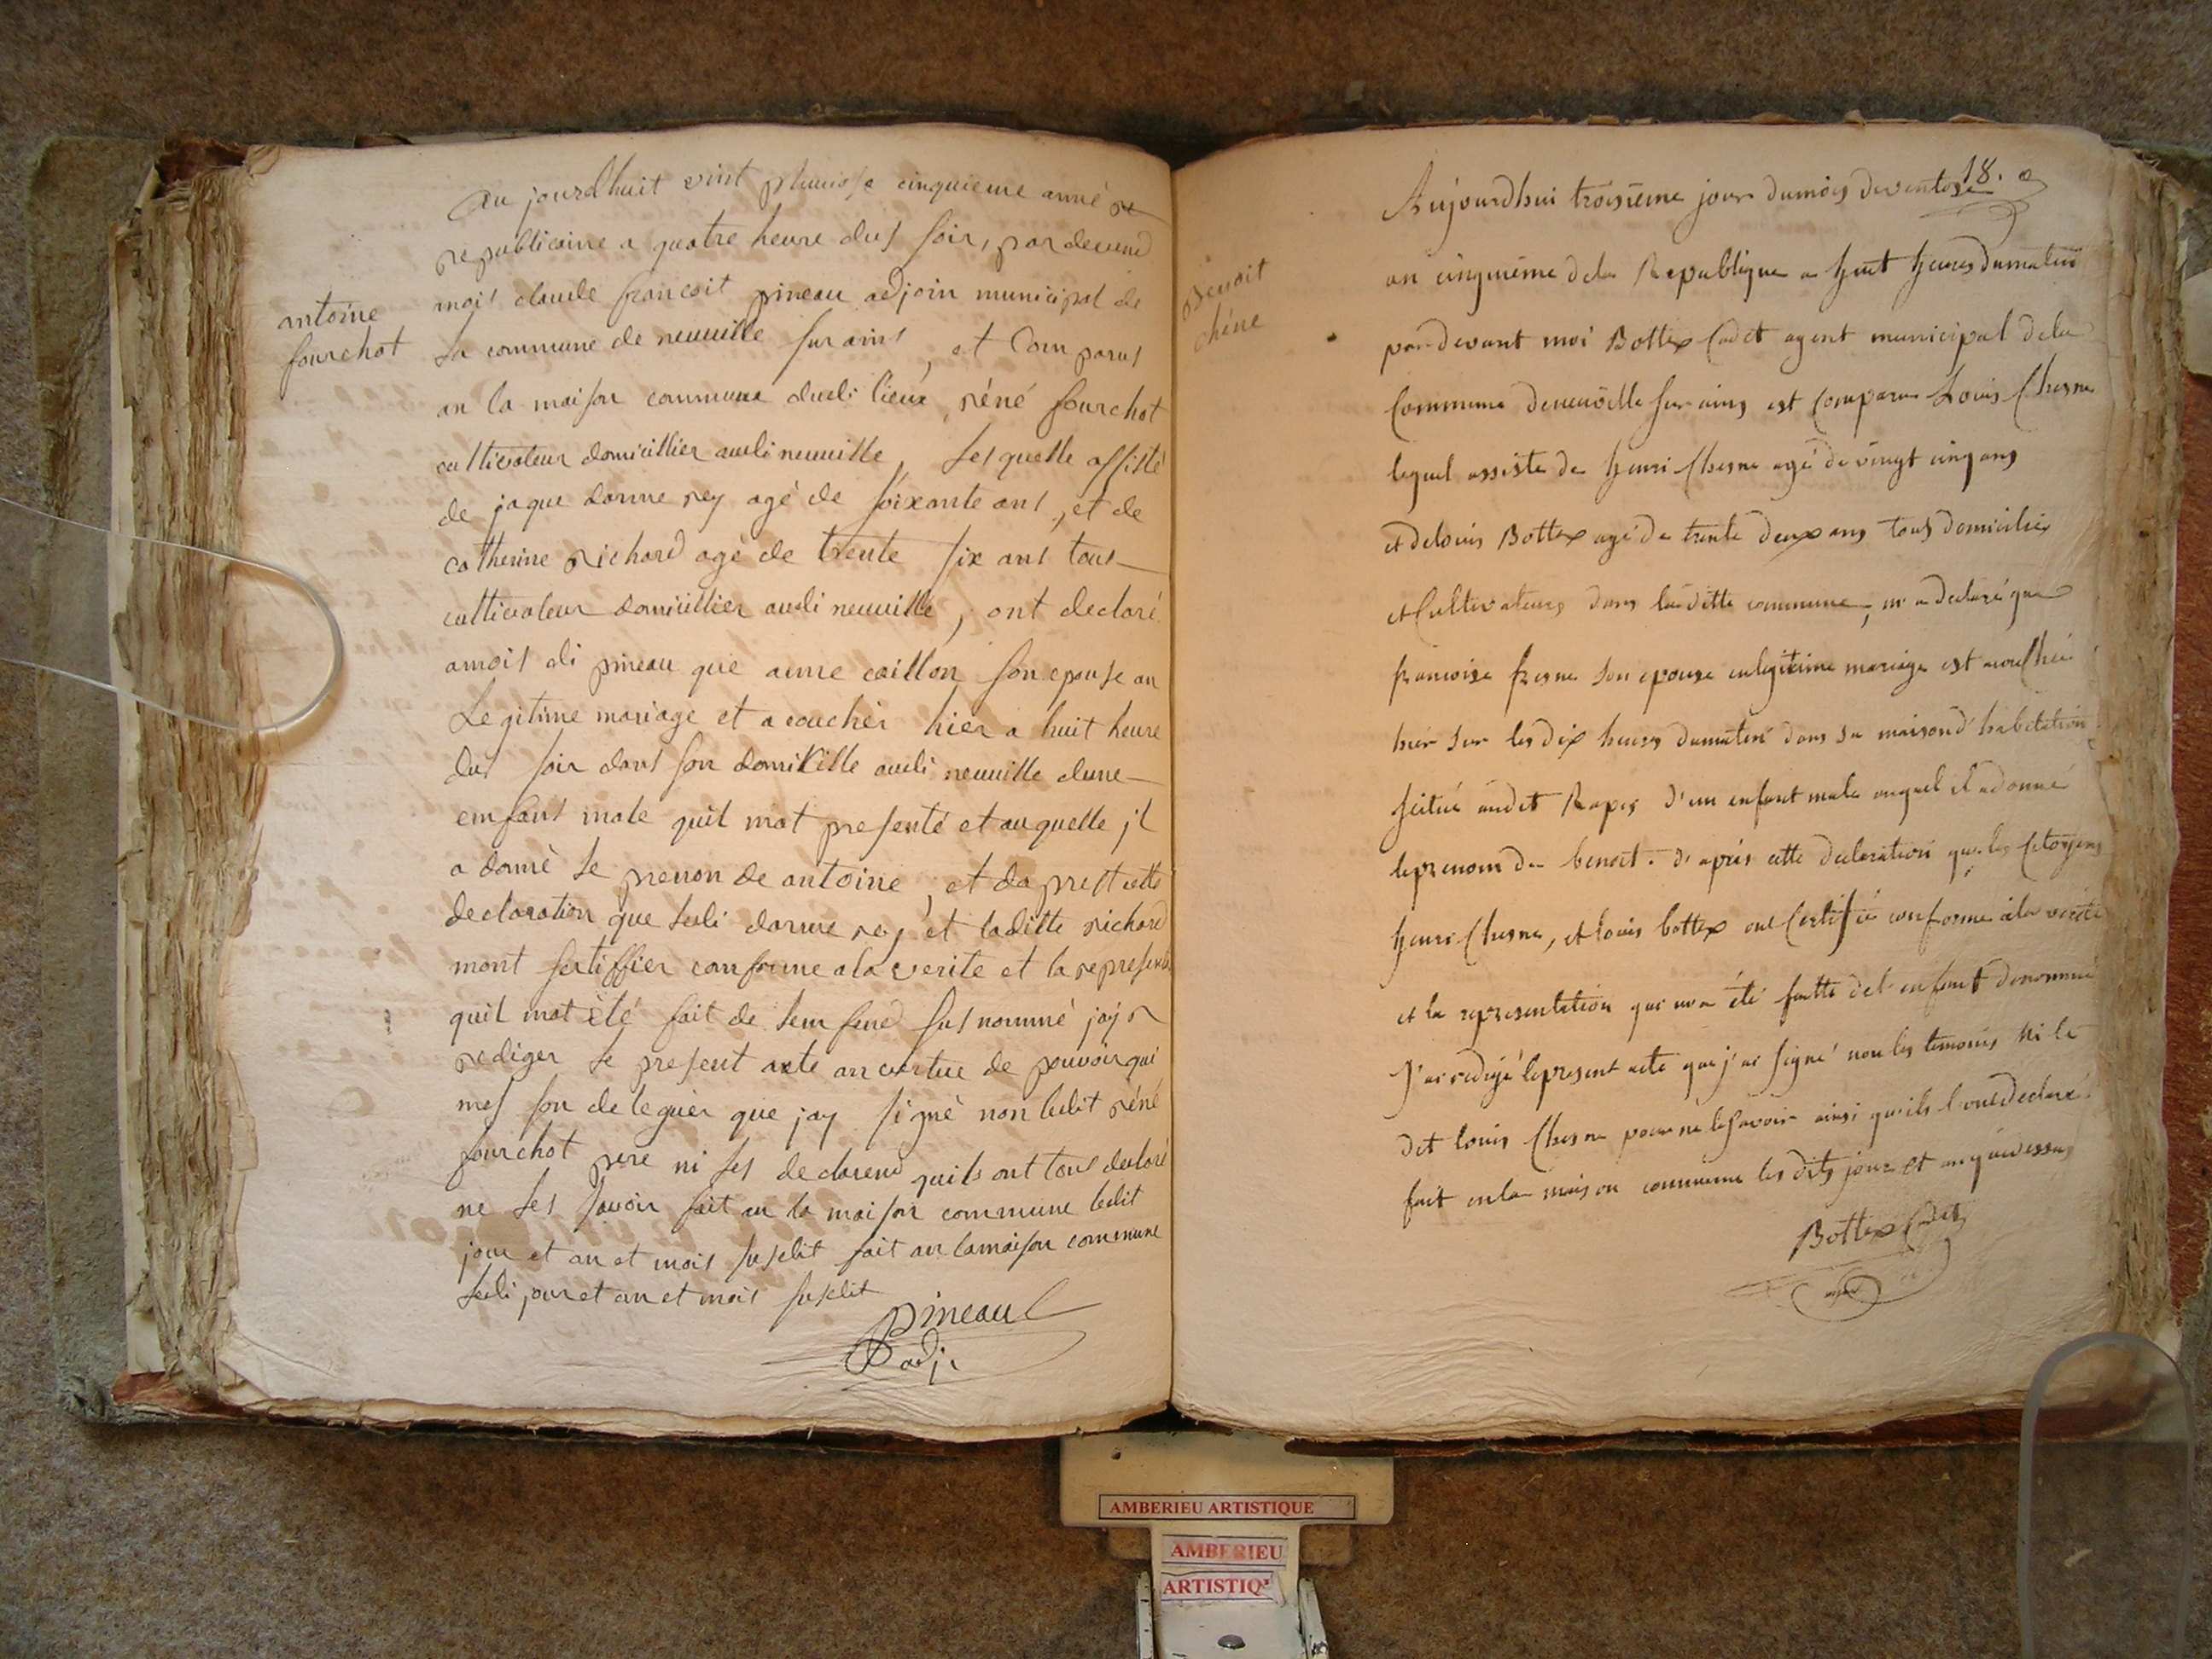 antoine
fourchot
Au jourdhuit vint pluviose cinquieme anné re
republicaine a quatre heure dus soir, par devend
mois claude francoit pineau adjoin municipal de
la commune de neuville sur ains, et Com parus
an la maison commune dudi lieux, réné fourchot
cultivateur domicillier audi neuville, lesquelle assisté
de jaque darme rey agé de soixante ans, et de
catherine richard agé de trente six ans tous
cultivateur domicillier audi neuville, ont declaré
amois di pineau que anne caillon son epouse an
Legitime mariage et a couchér hier a huit heure
dus soir dans son domikille audi neuville dune
emfans male quil mat presenté et auquelle jl
a donné le prenon de antoine, et da prest cette
declaration que ledi darme rey et laditte richard
mont sertiffier conforme a la verite et la represent
quil mat été fait de lemfend sus nommé jay r
rediger le present akte an vertue de pouvoir qui
mes son deleguér que jay signé non ledit réné
fourchot pere ni les declarend quils ont tous declaré
ne les savoir fait au la maison commune ledit
jour et an et mois susdit fait an la maison commune
ledi jour et an et mois susdit
pineau
adj.
18.
Benoit
chêne
Aujourdhui troisieme jour dumois deventose
an cinquieme dela Republique a huit heures dumatin
par devant moi Bottex Cadet agent municipal dela
Commune deneuville sur ains est Comparu Louis Chesne
lequel assiste de henri Chesne agé de vingt cinq ans
et delouis Bottex agé de trente deux ans tous domicilies
et Cultivateurs dans laditte commune, m a declaré que
francoise fresne son epouse enlegitime mariage est acouchée
hier sur les dix heures dumatin dans sa maison d'habitation
scitué audit Rapes d'un enfant male auquel il adonné
leprenom de benoit. d'après cette declaration que les Citoyens
henri Chesne, et louis bottex ont Certifié conforme à la verité
et la representation qui m a été faitte del'enfant denommé
J'ai redigé lepresent acte que j'ai signé non les temoins ni le
dit louis Chesne pour ne lesavoir ainsi quils l'ont declaré.
fait en la maison commune les dits jour et an quedessus
Bottex Cadet